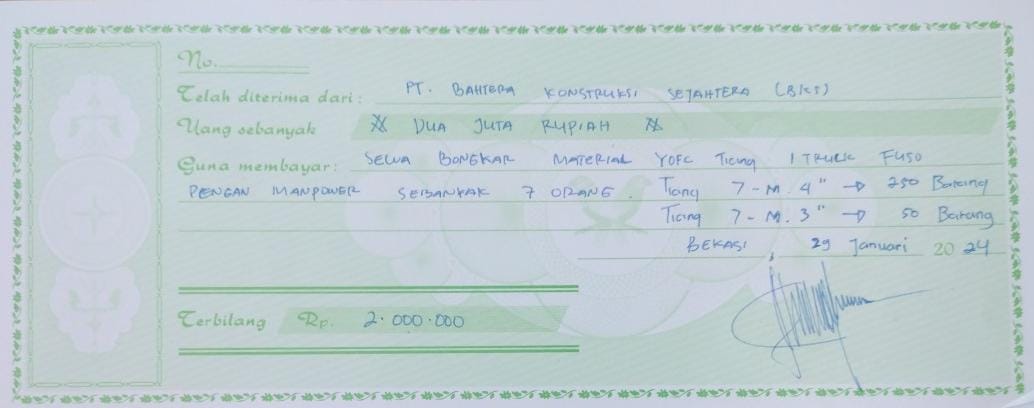 No.
Telah diterima dari : PT. BAHTERA KONSTRUKSI SEJAHTERA (BKS)
Uang sebanyak DUA JUTA RUPIAH
Guna membayar : SEWA BONGKAR MATERIAL YOFC Tiang 1 TRUCK FUSO
DENGAN MANPOWER SEBANYAK 7 ORANG. Tiang 7-M. 4" → 250 Batang
Tiang 7-M. 3" → 50 Batang
BEKASI, 29 Januari 2024
Terbilang Rp. 2.000.000